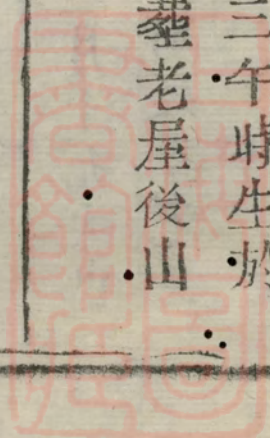 三午時生於
葬老屋後山